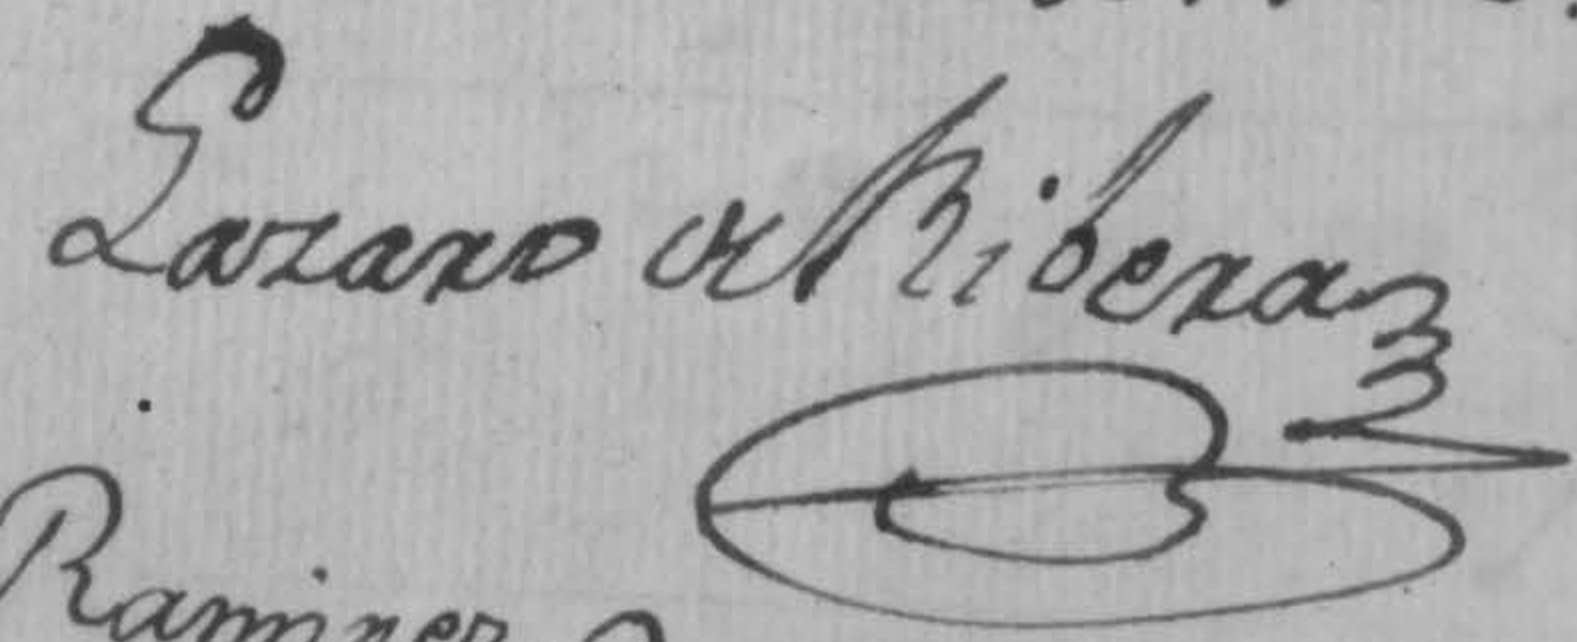 Lazaro de Ribera
Ramirez